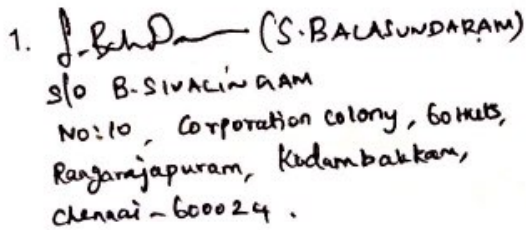 1. (S. BALASUNDARAM)
S/o B. SIVALINGAM
No: 10, Corporation colony, 60 Huts,
Rangarajapuram, Kodambakkam,
Chennai - 600024.